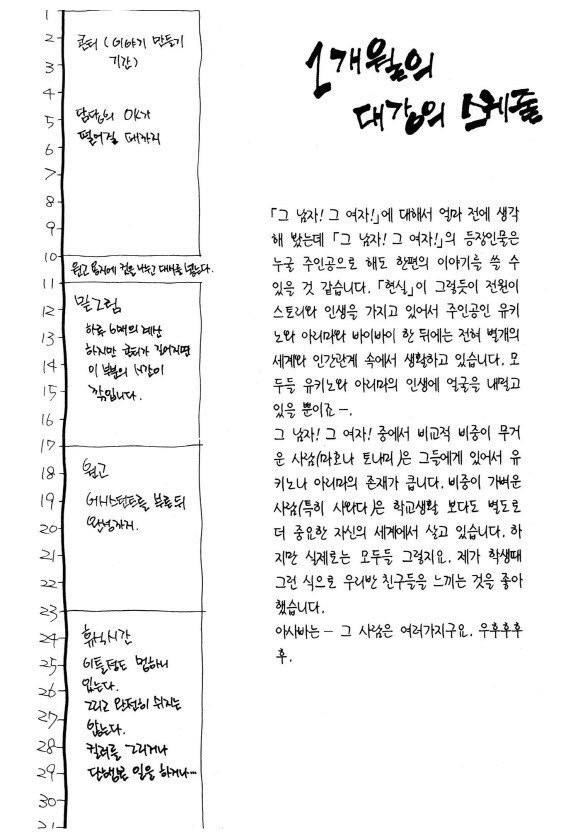 1
2
콘티 (이야기 만들기
기간)
3
4
5
담당의 OK가
떨어질 때까지
6
7
8
9
10
원고용지에 컷을 나누고 대사를 넣는다.
11
12
밑그림
13
하루 6매의 계산
하지만 콘티가 길어지면
14
이 부분의 시간이
15
깎입니다.
16
17
18
원고
19
어시스턴트를 부른 뒤
20
완성까지.
21
22
23
24
휴식시간
25
이틀정도 멍하니
26
있는다.
그리고 완전히 쉬지는
27
않는다.
28
컬러를 그리거나
29
단행본 일을 하거나…
30
31
1개월의
대강의 스케줄
「그 남자! 그 여자!」에 대해서 얼마 전에 생각
해 봤는데 「그 남자! 그 여자!」의 등장인물은
누굴 주인공으로 해도 한편의 이야기를 쓸 수
있을 것 같습니다. 「현실」이 그렇듯이 전원이
스토리와 인생을 가지고 있어서 주인공인 유키
노와 아리마와 바이바이 한 뒤에는 전혀 별개의
세계와 인간관계 속에서 생활하고 있습니다. 모
두들 유키노와 아리마의 인생에 얼굴을 내밀고
있을 뿐이죠 —.
그 남자! 그 여자! 중에서 비교적 비중이 무거
운 사람(마호나 토나미)은 그들에게 있어서 유
키노나 아리마의 존재가 큽니다. 비중이 가벼운
사람(특히 사와다)은 학교생활 보다도 별도로
더 중요한 자신의 세계에서 살고 있습니다. 하
지만 실제로는 모두들 그렇지요. 제가 학생때
그런 식으로 우리반 친구들을 느끼는 것을 좋아
했습니다.
아사바는 — 그 사람은 여러가지구요. 우후후후
후.